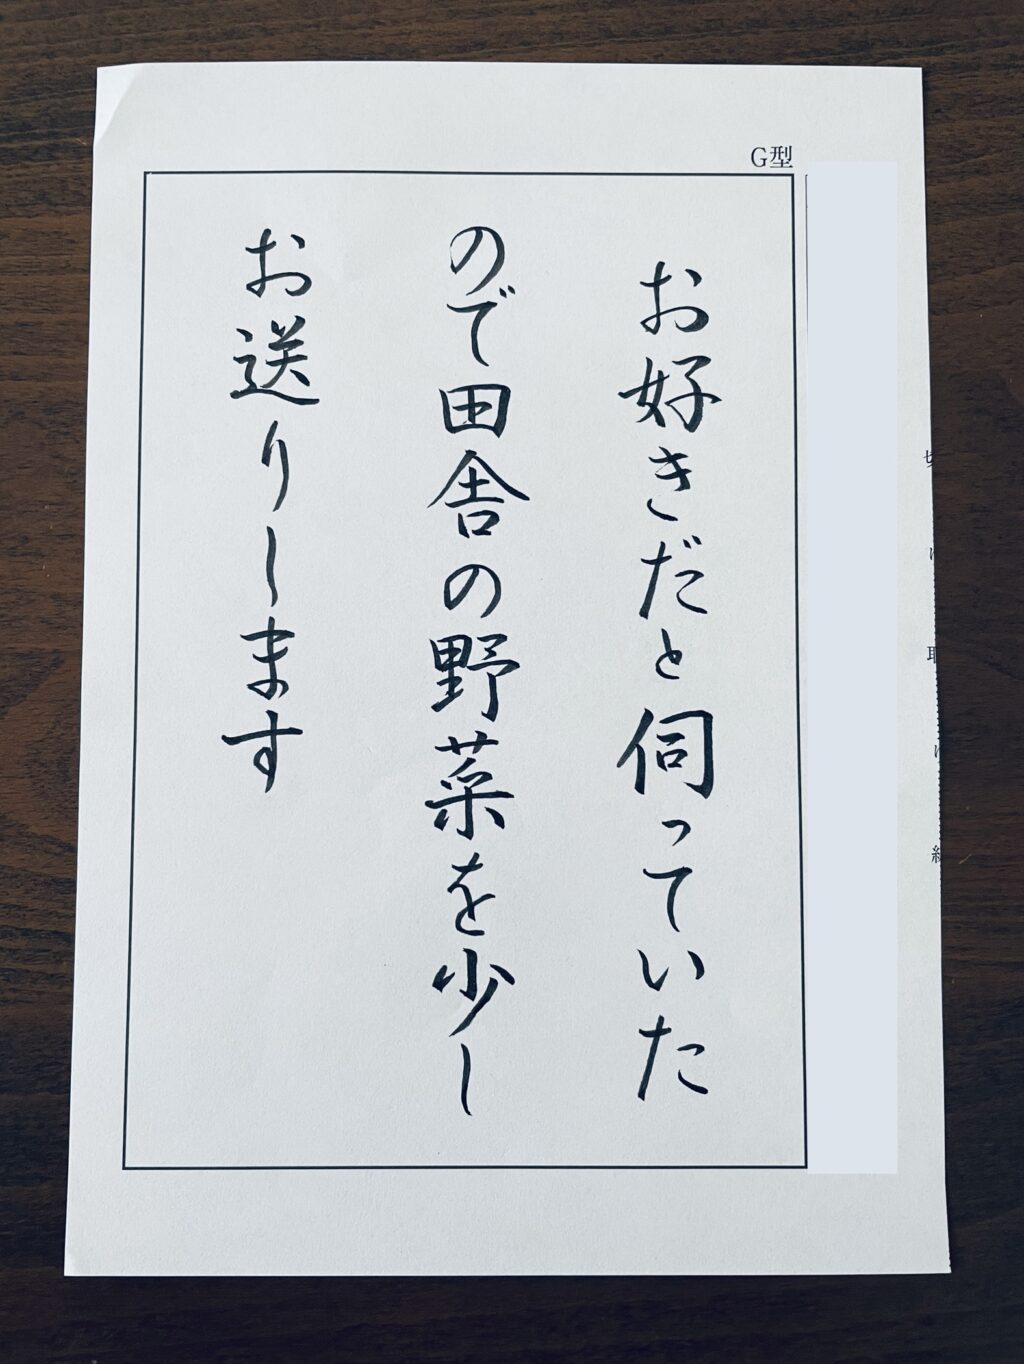 G型
お好きだと伺っていた
ので田舎の野菜を少し
お送りします